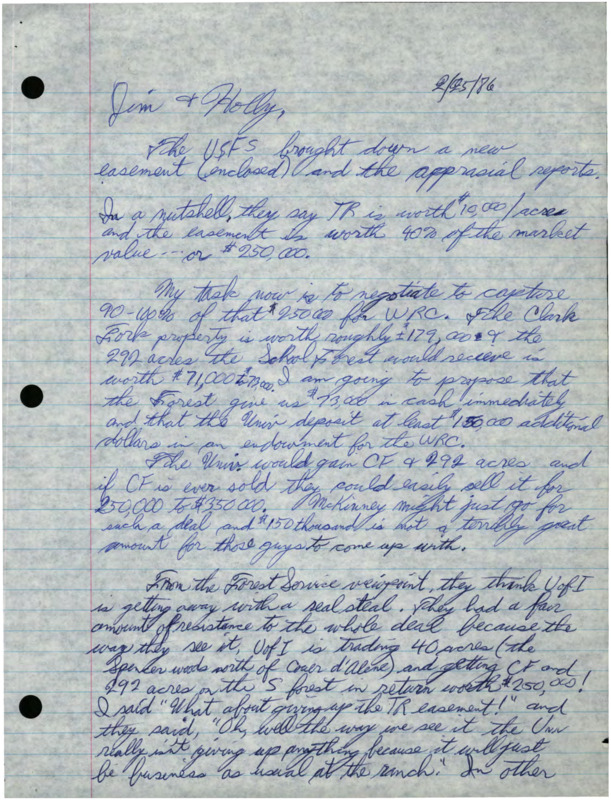 2/25/86
Jim & Holly,
The USFS brought down a new
easement (enclosed) and the apprasial reports.
In a nutshell, they say TR is worth $10,000/acre
and the easement is worth 40% of the market
value --- or $250,000.
My task now is to negotiate to capture
90-100% of that $250000 for WRC. The Clark
Fork property is worth roughly ±179,000 & the
292 acres the School Forest would recieve is
worth $71,000 I am going to propose that
the Forest give us $73,000 in cash immediately
and that the Univ deposit at least $150,000 additional
dollars in an endowment for the WRC.
The Univ would gain CF & 292 acres and
if CF is ever sold they could easily sell it for
250,000 to $350000. McKinney might just go for
such a deal and $150 thousand is not a terribly great
amount for those guys to come up with.
From the Forest Service viewpoint, they think UofI
is getting away with a real steal. They had a fair
amount of resistance to the whole deal because the
way they see it, UofI is trading 40 acres (the
Spencer woods north of Coeur d'Alene) and getting CF and
292 acres on the S forest in return worth $250,000!
I said "What about giving up the TR easement!" and
they said, "Oh, well the way we see it the Univ
really isn't giving up anything because it will just
be business as usual at the ranch." In other